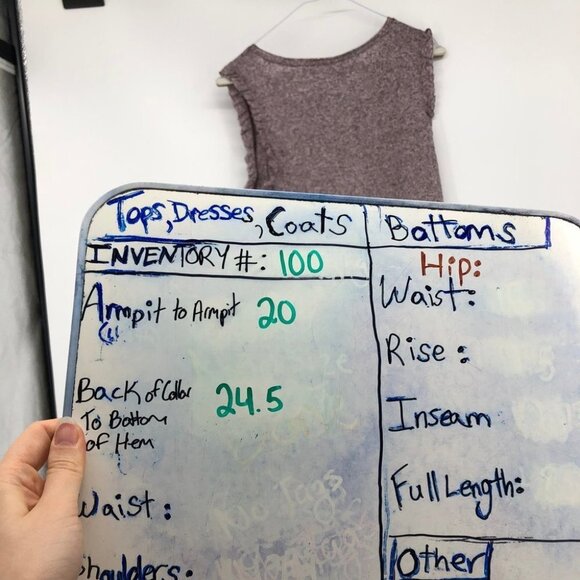 Tops, Dresses, Coats
INVENTORY #: 100
Armpit to Armpit 20
Back of Collar 24.5
To Bottom
of Hem
Waist:
Shoulders:
Bottoms
Hip:
Waist:
Rise:
Inseam
Full Length:
Other
No Tags